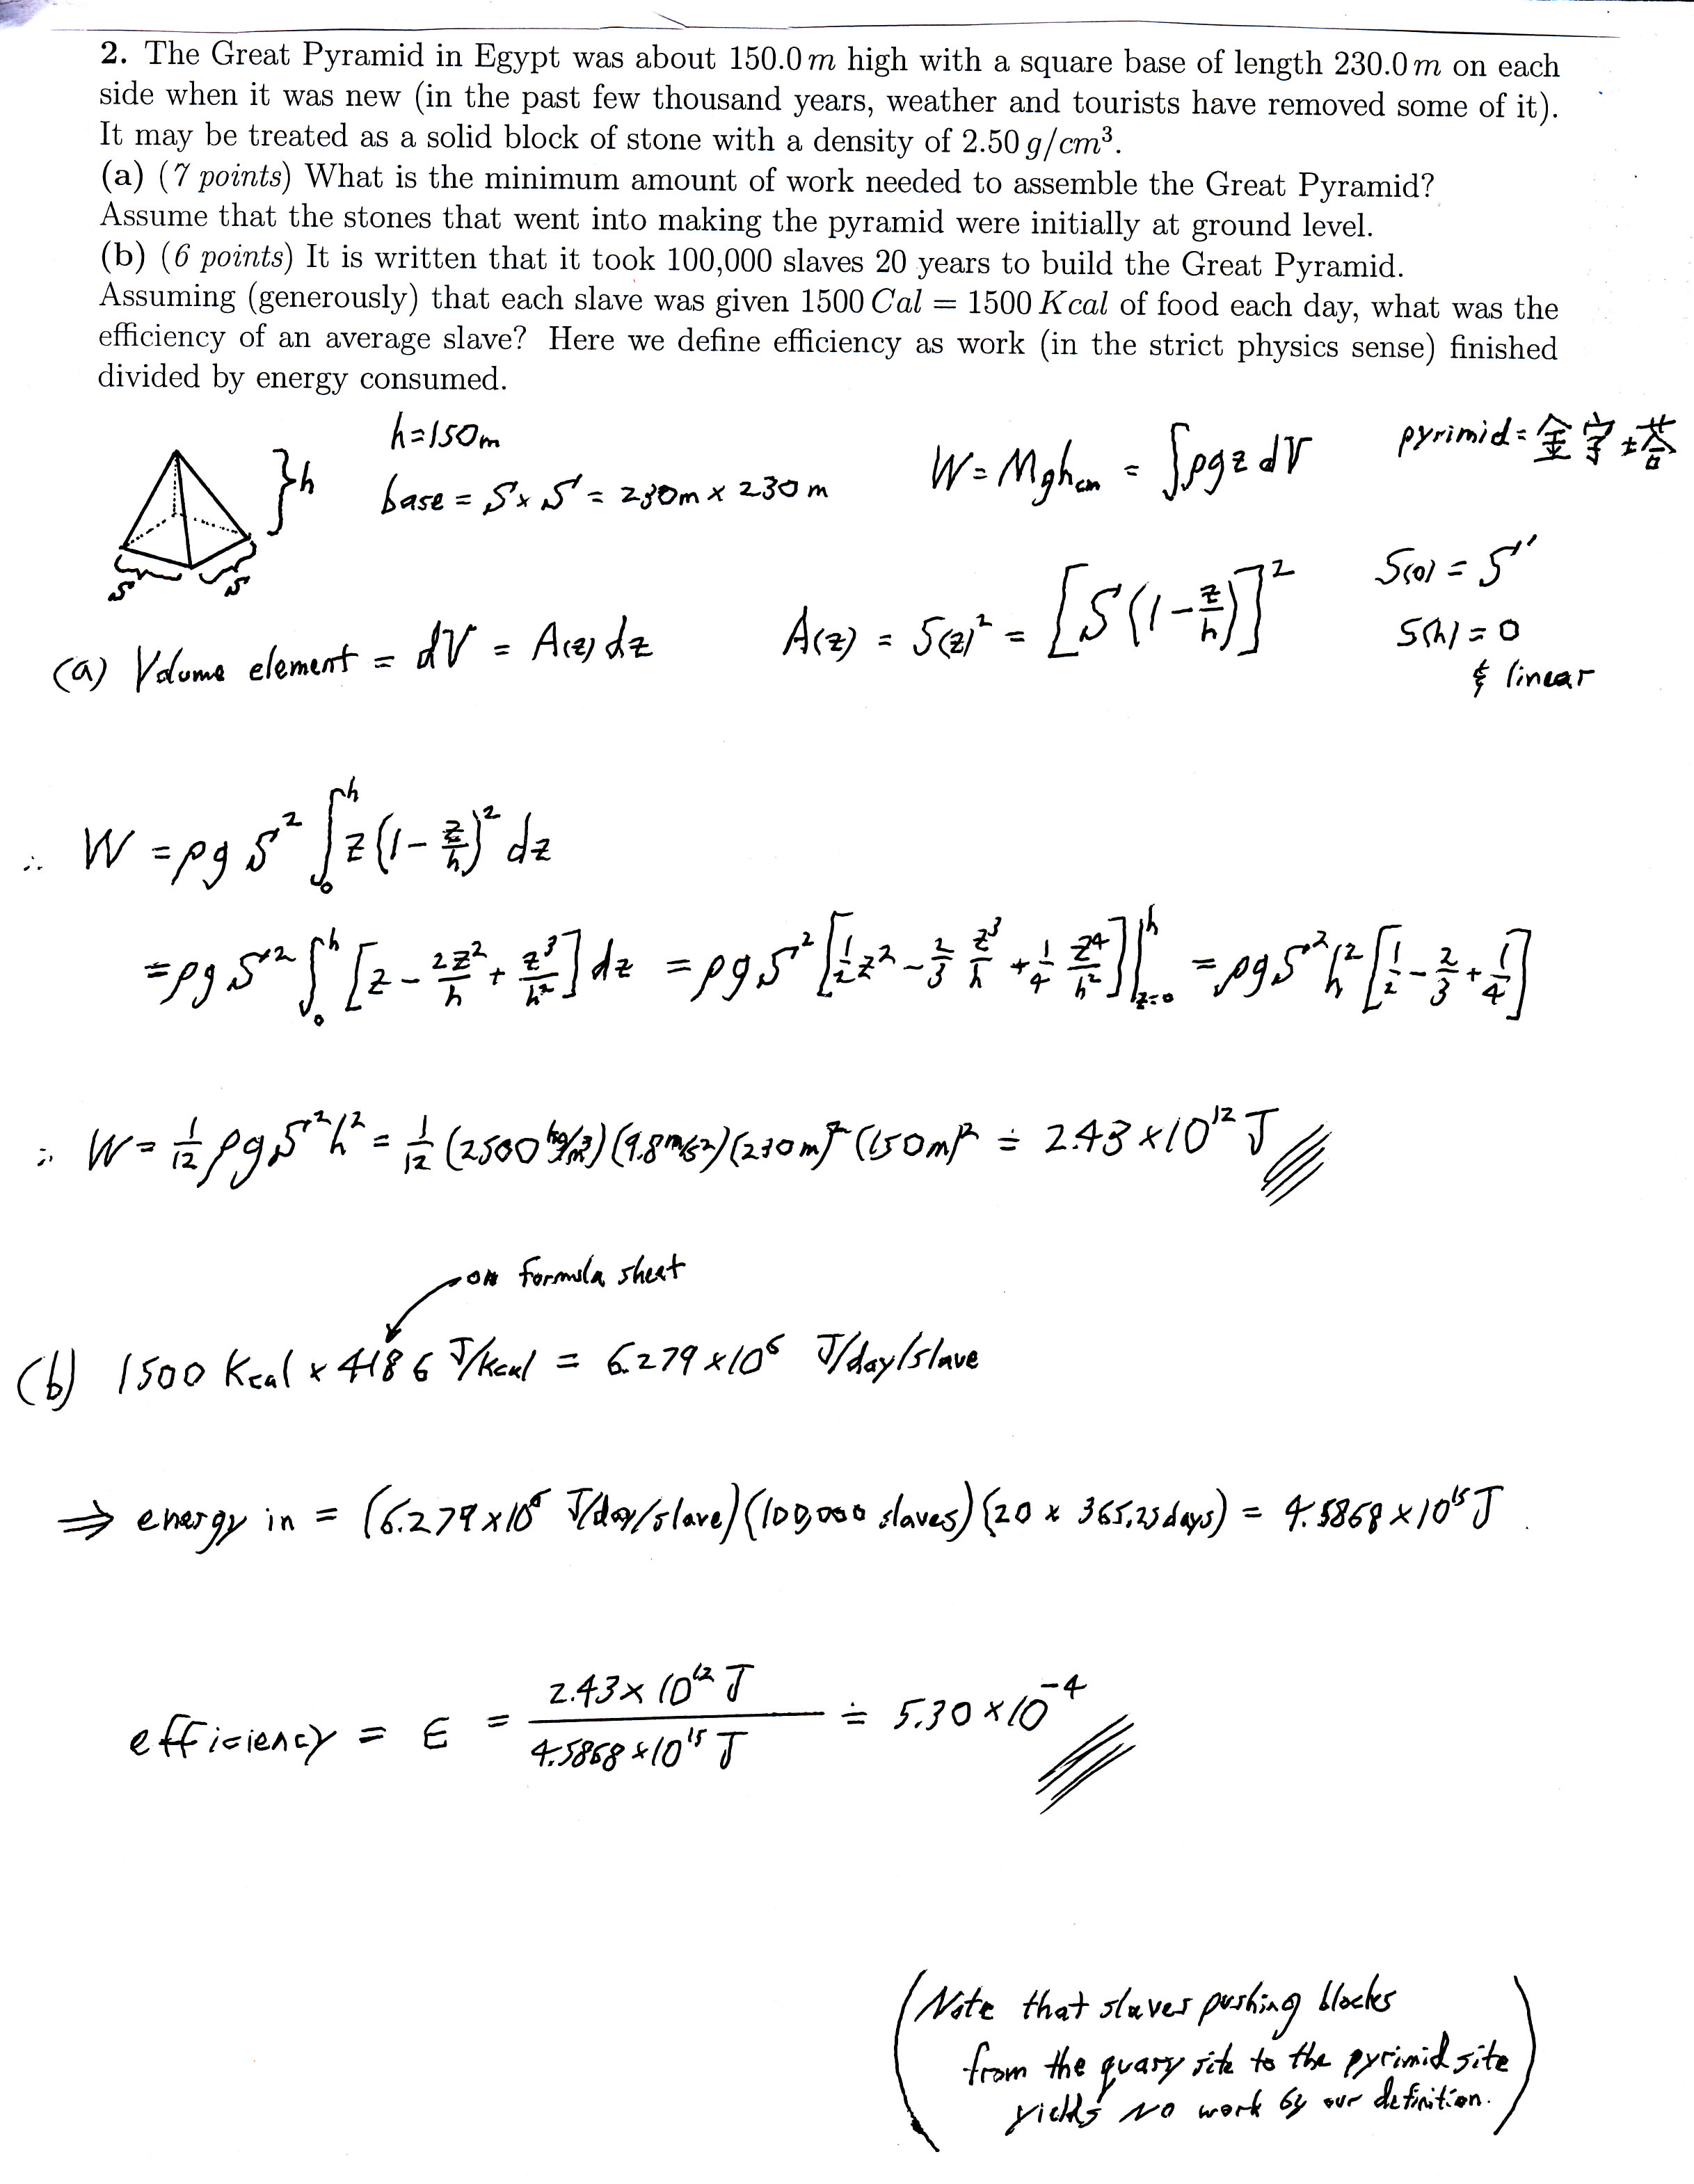 2. The Great Pyramid in Egypt was about 150.0 m high with a square base of length 230.0 m on each
side when it was new (in the past few thousand years, weather and tourists have removed some of it).
It may be treated as a solid block of stone with a density of 2.50 g/cm³.
(a) (7 points) What is the minimum amount of work needed to assemble the Great Pyramid?
Assume that the stones that went into making the pyramid were initially at ground level.
(b) (6 points) It is written that it took 100,000 slaves 20 years to build the Great Pyramid.
Assuming (generously) that each slave was given 1500 Cal = 1500 Kcal of food each day, what was the
efficiency of an average slave? Here we define efficiency as work (in the strict physics sense) finished
divided by energy consumed.
h=150m
}h base = S x S = 230m x 230m W = Mgh_cm = ∫ρgz dV pyrimid = 金字塔
S S
(a) Volume element = dV = A(z) dz A(z) = S(z)² = [S(1-z/h)]² S(0) = S
S(h) = 0
& linear
∴ W = ρg S² ∫₀ʰ z(1-z/h)² dz
= ρg S² ∫₀ʰ [z - 2z²/h + z³/h²] dz = ρg S² [1/2 z² - 2/3 z³/h + 1/4 z⁴/h²]|ʰ_z=0 = ρg S² h² [1/2 - 2/3 + 1/4]
∴ W = 1/12 ρg S² h² = 1/12 (2500 kg/m³)(9.8 m/s²)(230m)² (150m)² ≐ 2.43 x 10¹² J
on formula sheet
(b) 1500 Kcal x 4186 J/kcal = 6.279 x 10⁶ J/day/slave
⇒ energy in = (6.279 x 10⁶ J/day/slave)(100,000 slaves)(20 x 365.25 days) = 4.5868 x 10¹⁵ J
efficiency = ε = 2.43 x 10¹² J / 4.5868 x 10¹⁵ J ≐ 5.30 x 10⁻⁴
(Note that slaves pushing blocks
from the quary site to the pyrimid site
yields NO work by our definition.)